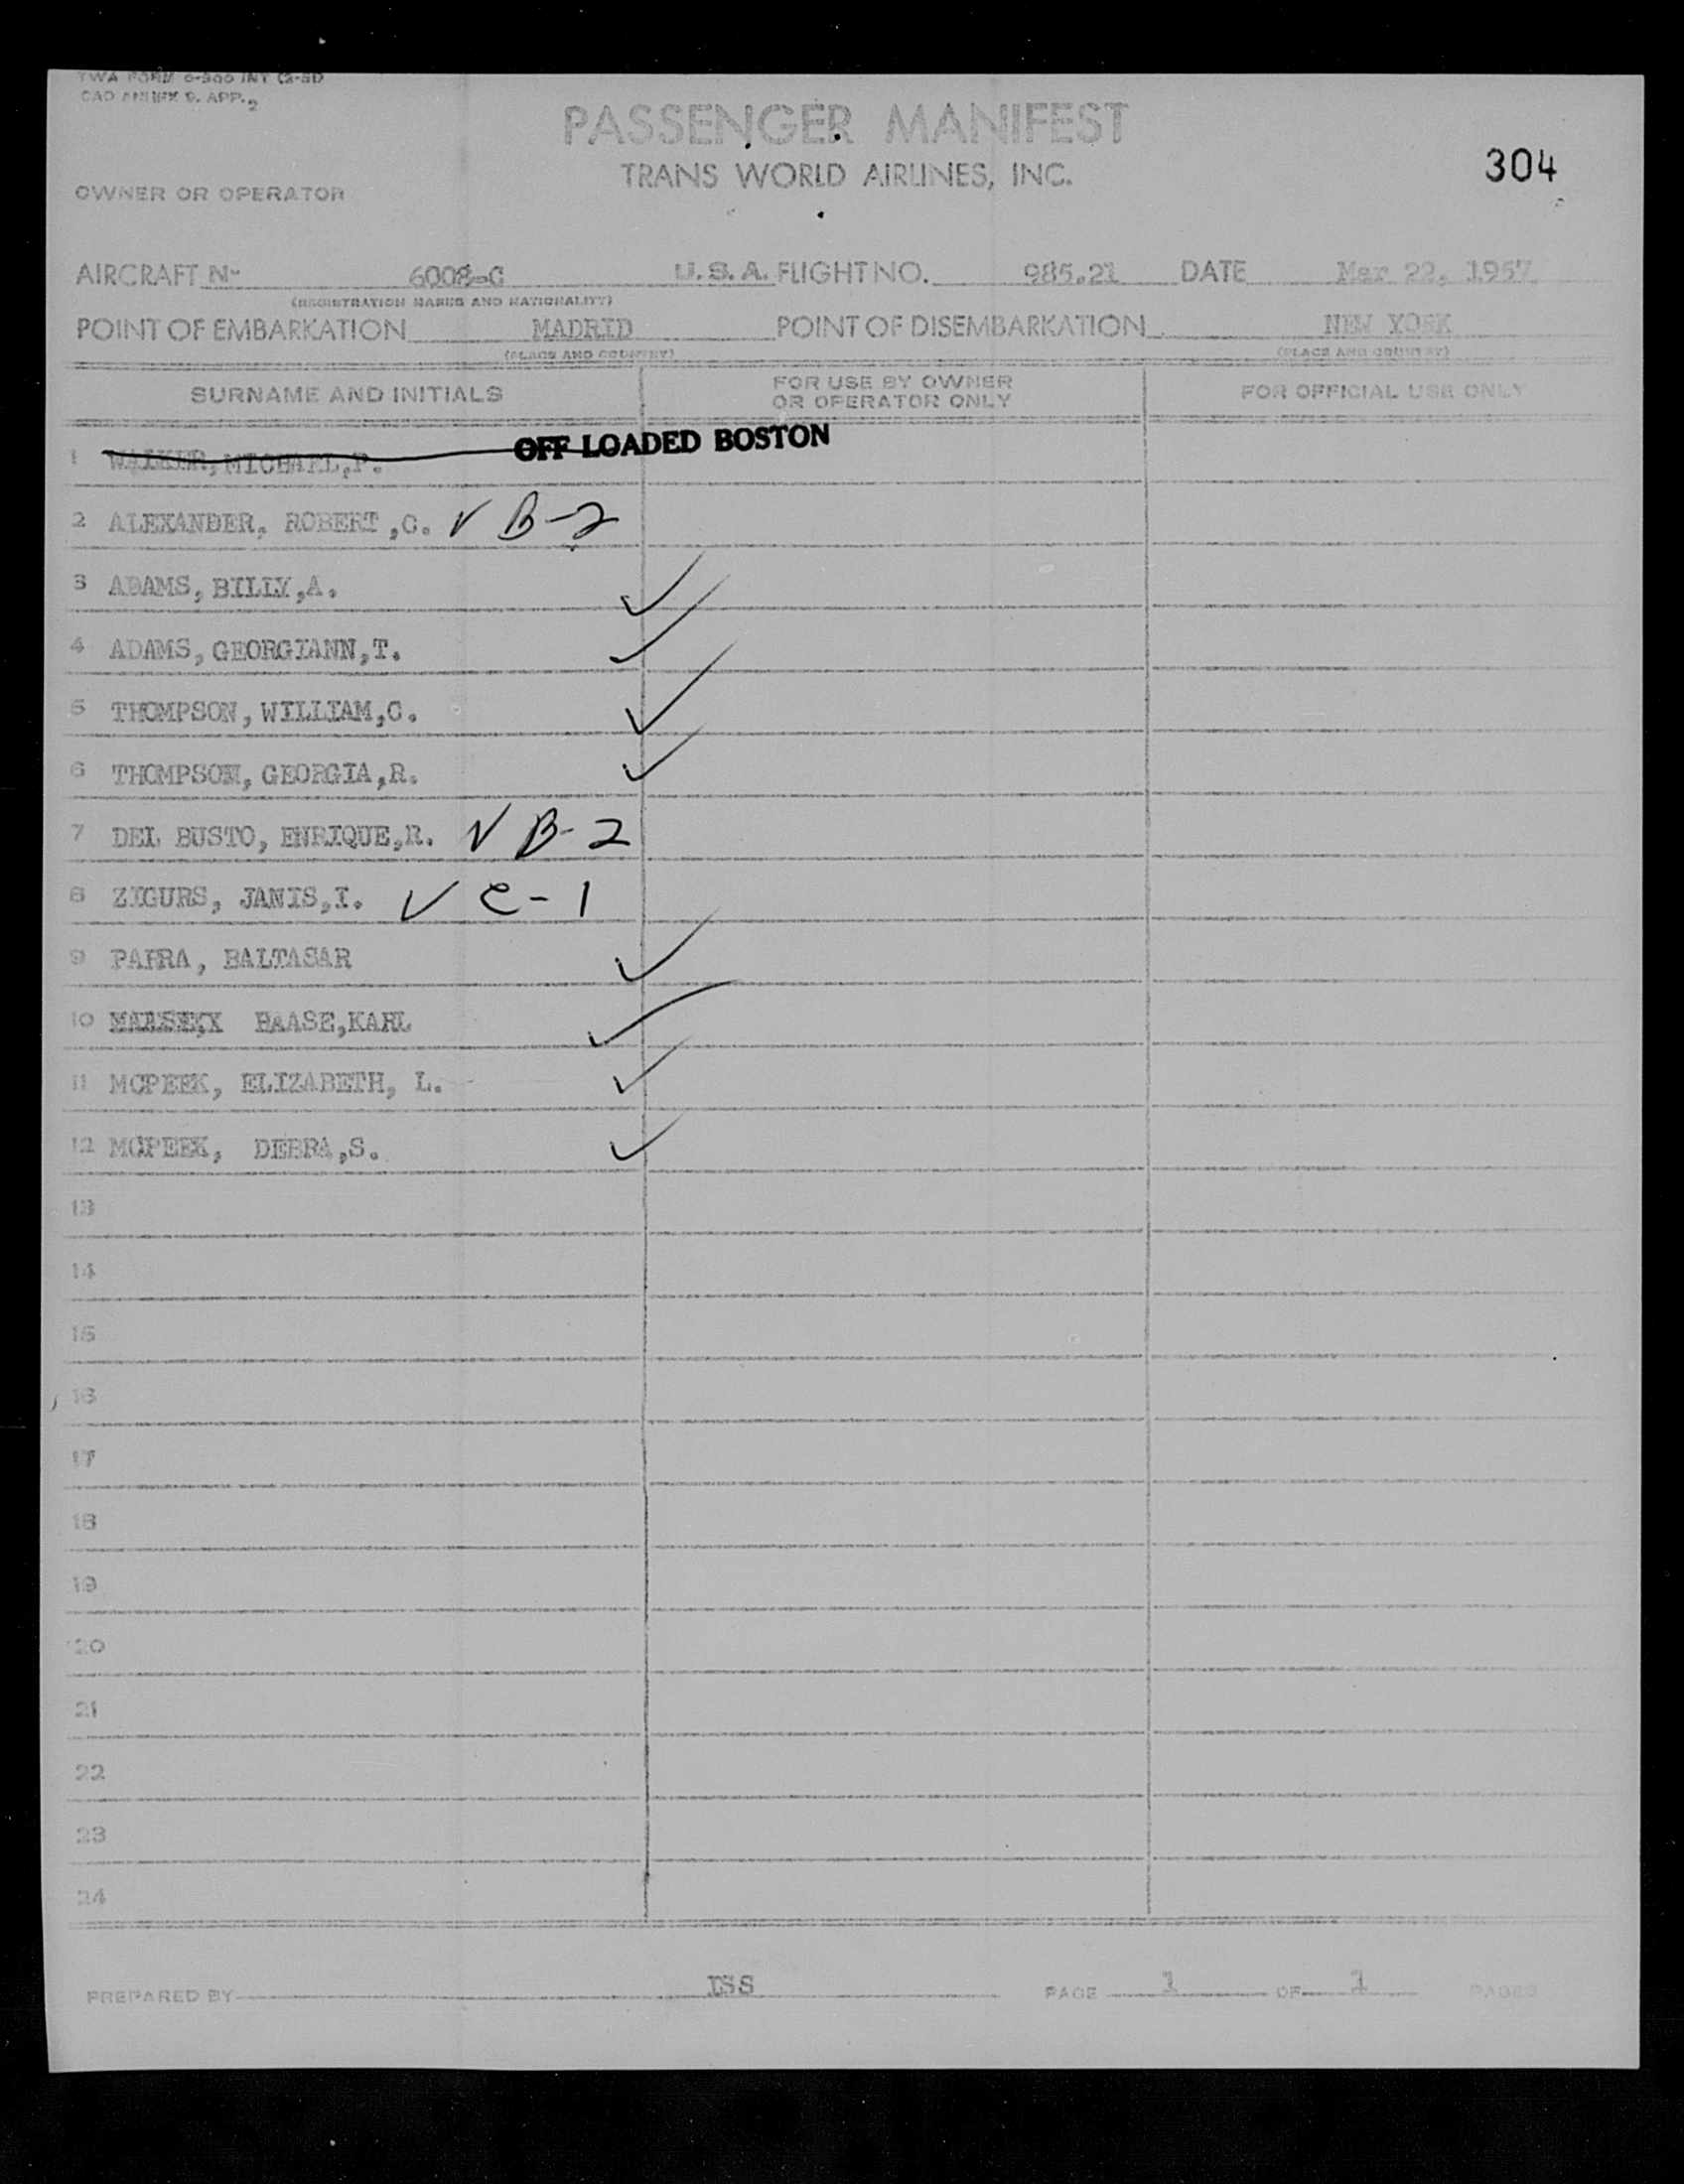 TWA FORM 0-300 INT (2-51)
CAO ANNEX 9. APP. 2
PASSENGER MANIFEST
TRANS WORLD AIRLINES, INC.
304
OWNER OR OPERATOR
AIRCRAFT N- 6008-C U.S.A. FLIGHT NO. 985.21 DATE Mar 22, 1957
(REGISTRATION MARKS AND NATIONALITY)
POINT OF EMBARKATION MADRID POINT OF DISEMBARKATION NEW YORK
(PLACE AND COUNTRY) (PLACE AND COUNTRY)
SURNAME AND INITIALS FOR USE BY OWNER OR OPERATOR ONLY FOR OFFICIAL USE ONLY
1 WALKER, MICHAEL,P. OFF LOADED BOSTON
2 ALEXANDER, ROBERT ,C. ✓ B-2
3 ADAMS, BILLY,A. ✓
4 ADAMS, GEORGIANN,T. ✓
5 THOMPSON, WILLIAM,C. ✓
6 THOMPSON, GEORGIA,R. ✓
7 DEL BUSTO, ENRIQUE,R. ✓ B-2
8 ZIGURS, JANIS,I. ✓ C-1
9 PARRA, BALTASAR ✓
10 HAASE,KARL ✓
11 MCPEEK, ELIZABETH, L. ✓
12 MCPEEK, DEBRA,S. ✓
13
14
15
16
17
18
19
20
21
22
23
24
PREPARED BY ISS PAGE 1 OF 1 PAGES